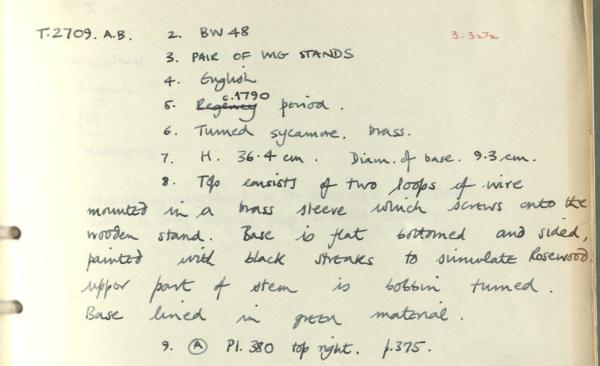 T.2709. A.B. 2. BW 48 3.3272
3. PAIR OF WIG STANDS
4. English
c.1790
5. Regency period.
6. Turned sycamore, brass.
7. H. 36.4 cm. Diam. of base. 9.3 cm.
8. Top consists of two loops of wire
mounted in a brass sleeve which screws onto the
wooden stand. Base is flat bottomed and sided,
painted with black streaks to simulate Rosewood
upper part of stem is bobbin turned.
Base lined in green material.
9. A Pl. 380 top right. p.375.